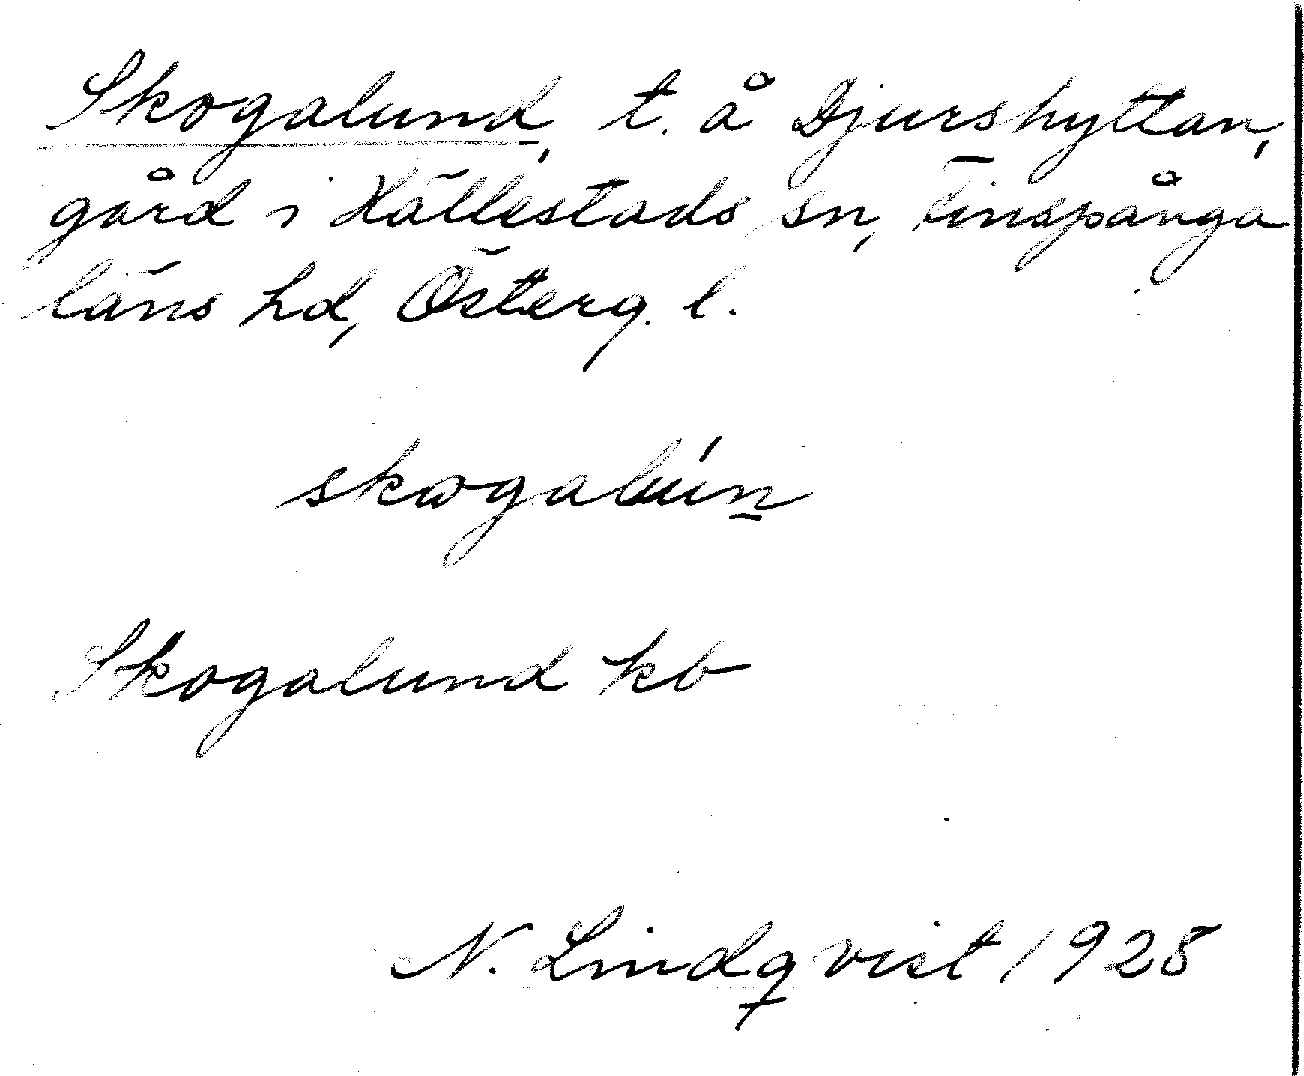 Skogalund, t. å Djurshyttan,
gård i Hällestads sn, Finspånga
läns hd, Österg. l.
skogalún
Skogalund kb
N. Lindqvist 1928